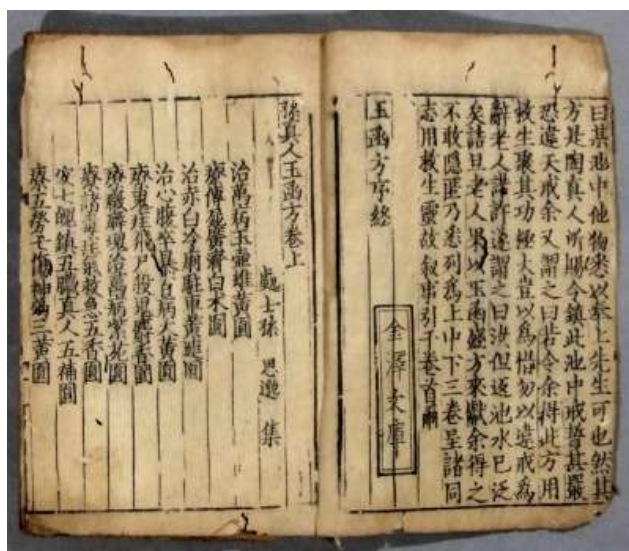 曰某池中他物悉以奉上先生可也然其
方是陶真人所賜令鎮此池中戒誓甚嚴
恐違天戒余又謂之曰若令余得此方用
救生衆其功極大豈以為惜勿以違戒為
辭老人諾許遂謂之曰汝但返池水已泛
矣詰旦老人果以玉函盛方來獻余得之
不敢隱匿乃悉列為上中下三卷呈諸同
志用救生靈故叙事引于卷首爾
玉函方序終
金澤文庫
孫真人玉函方卷上
處士孫 思邈 集
治萬病玉壺雄黃圓
療傳屍
治赤白冷痢駐車黃連圓
治心腹卒暴百病大黃圓
療東疰飛尸
療癥癖塊澄萬病紫花圓
療諸毒疰氣救急五香圓
安七魄鎮五臟真人五補圓
療五勞七傷神驗三黃圓